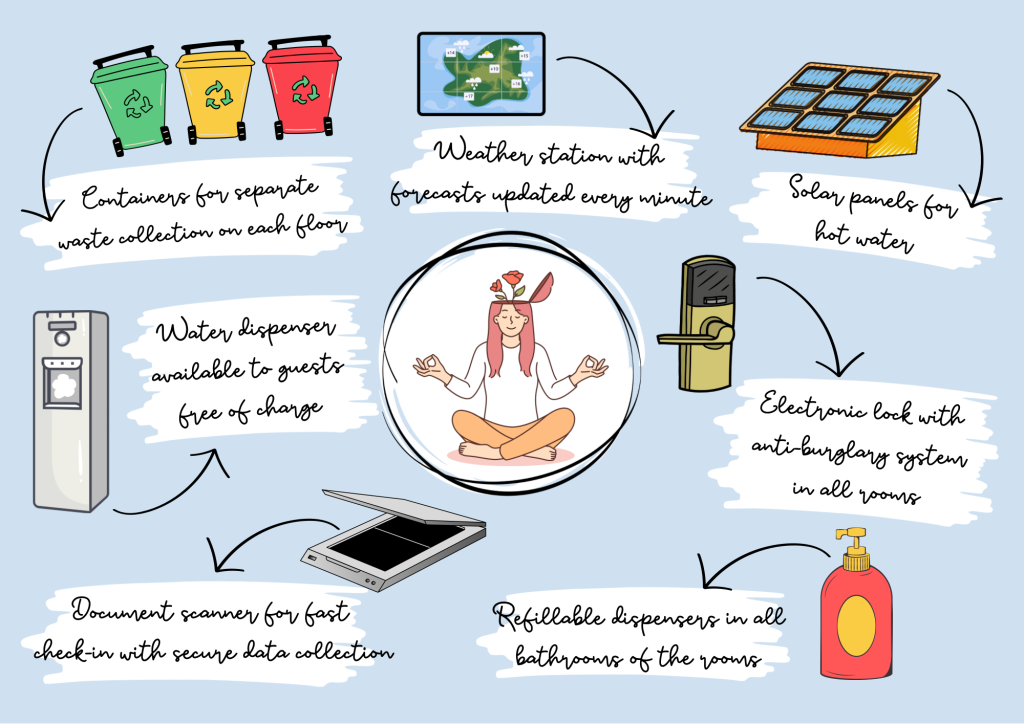 Containers for separate
waste collection on each floor
Weather station with
forecasts updated every minute
Solar panels for
hot water
Water dispenser
available to guests
free of charge
Electronic lock with
anti-burglary system
in all rooms
Document scanner for fast
check-in with secure data collection
Refillable dispensers in all
bathrooms of the rooms